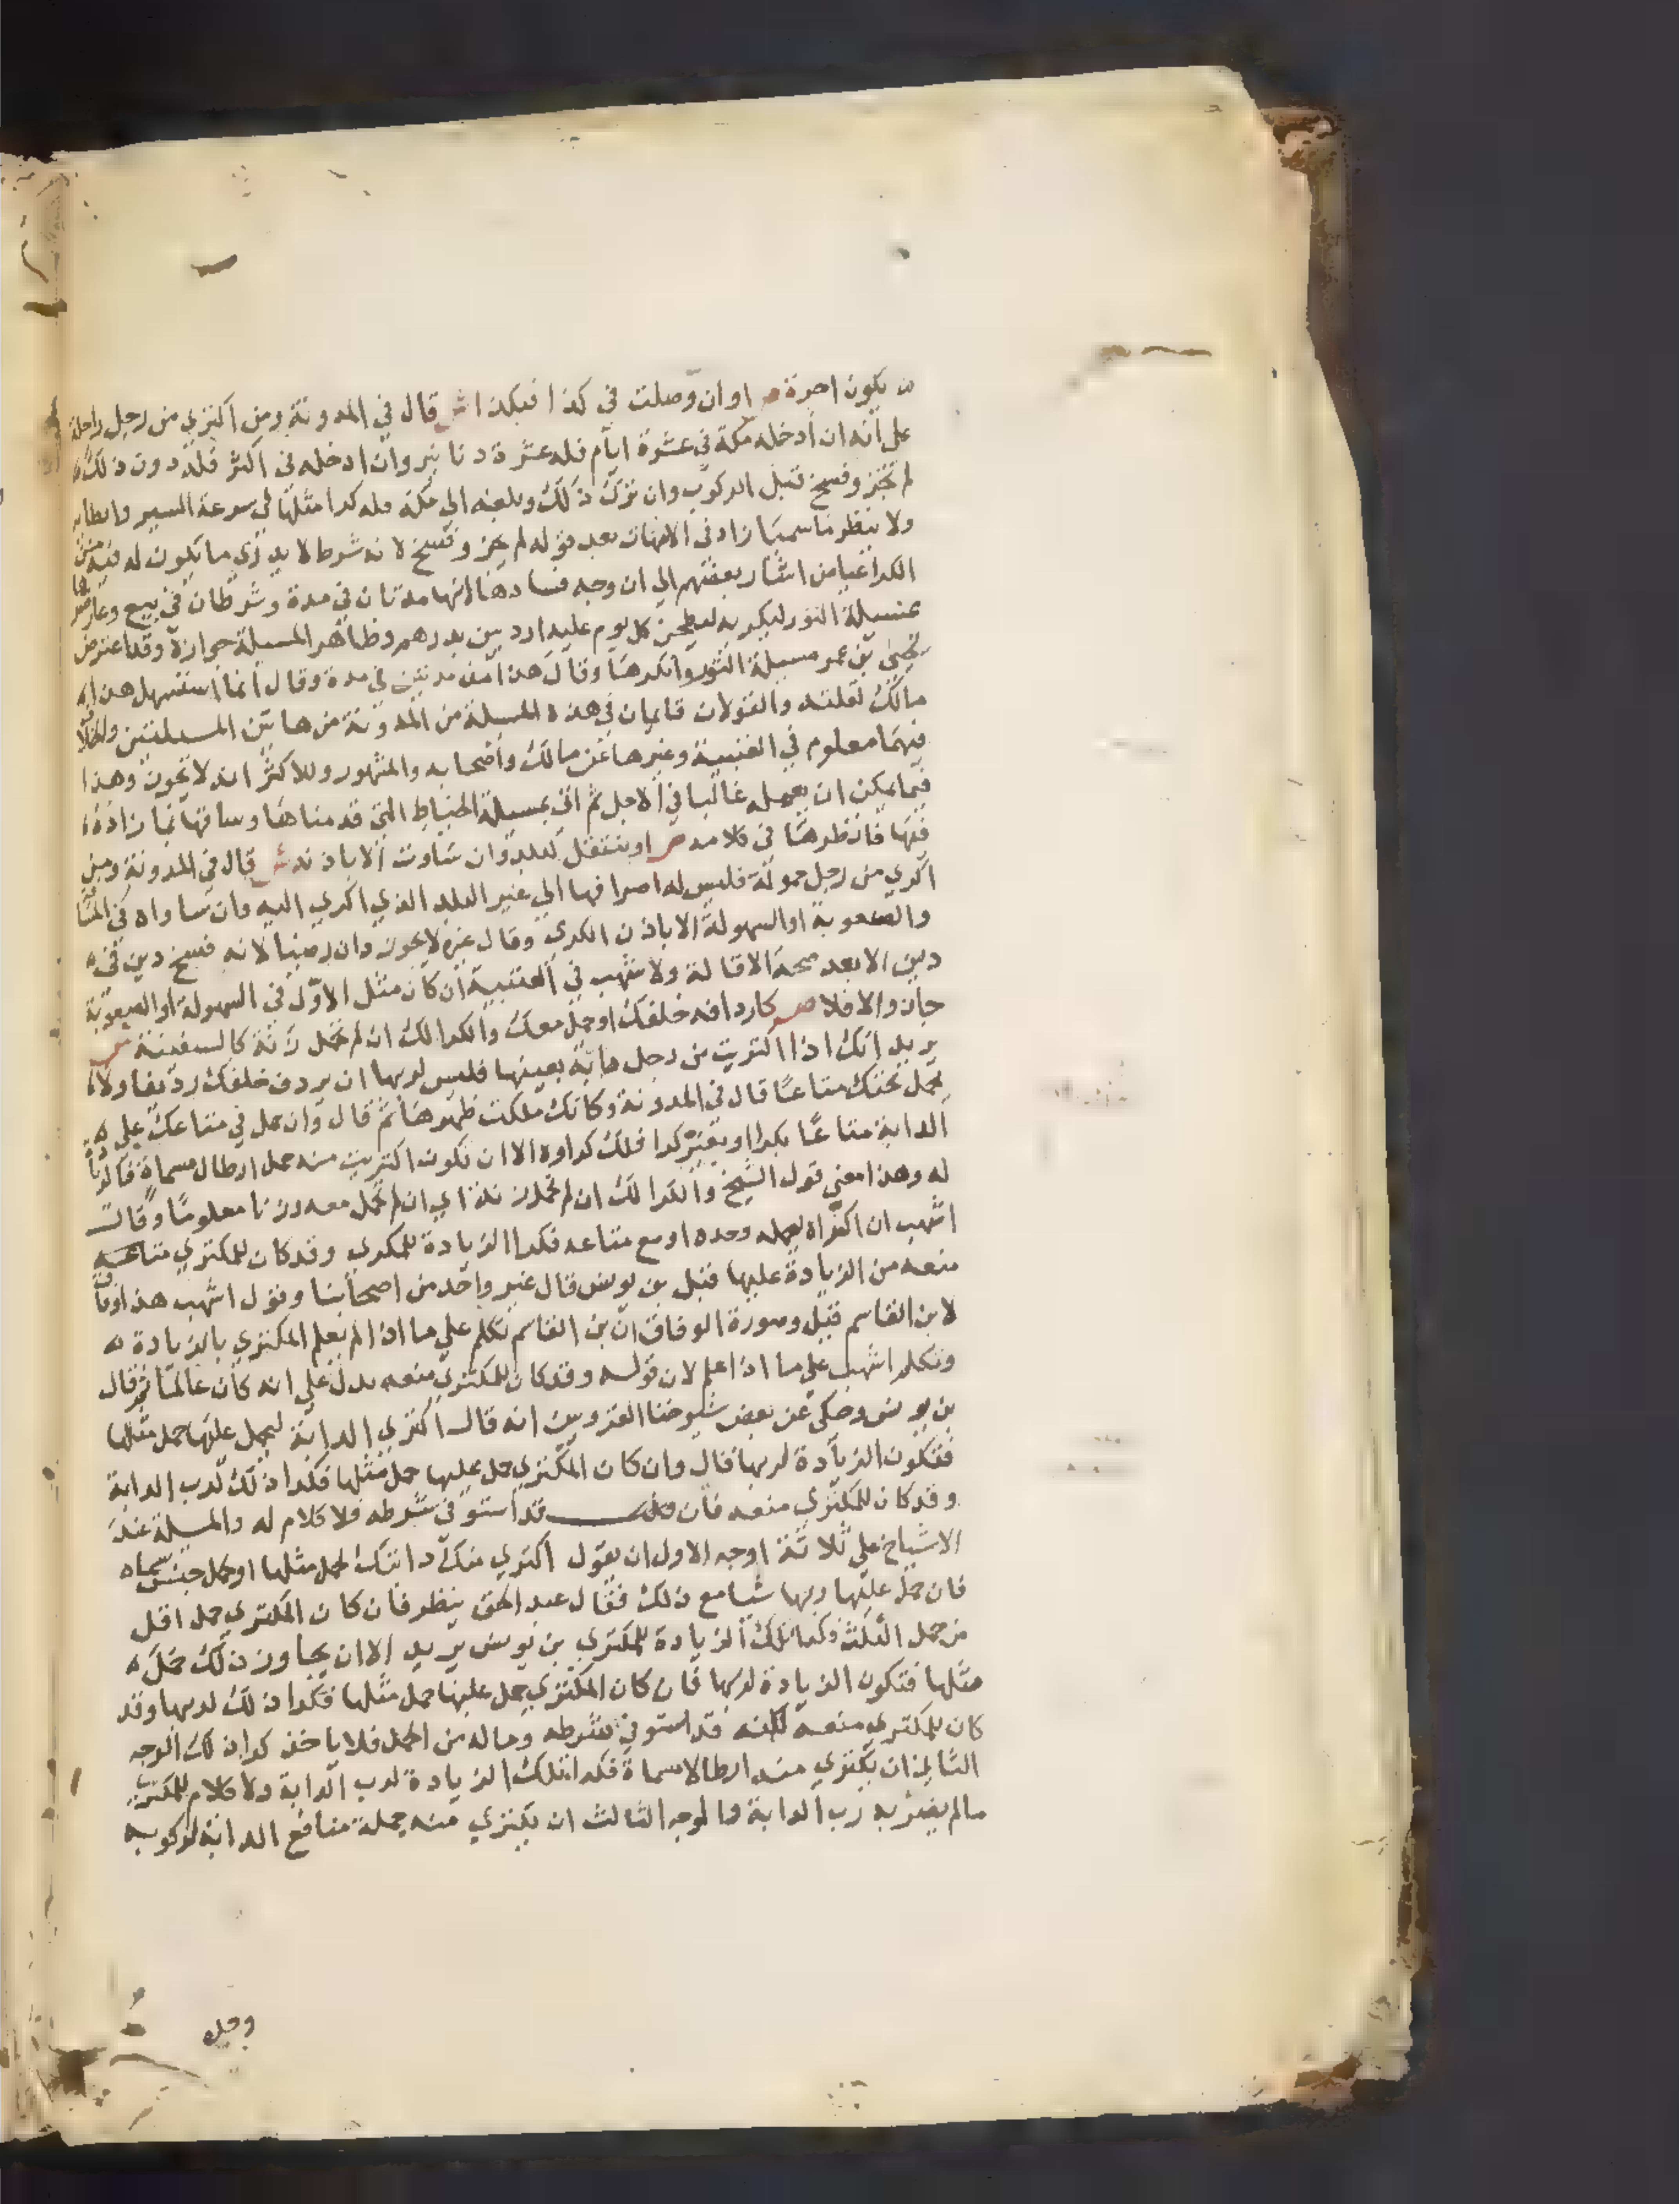 يكون اجرة ص او ان وصلت في كذا فبكذا ش قال في المدونة ومن اكتري من رجل راحلة
على أنه ان أدخله مكة في عشرة ايام فله عشرة دنانير وان ادخله في اكثر فله دون ذلك
لم تجز وفسخ قبل الركوب وان نزل ذلك وبلغه الي مكة فله كرا مثلها في سرعة السير وابطايه
ولا ينظر ما سميا زاد في الامهات بعد قوله لم يجز وفسخ لانه شرط لا يدري ما يكون له فيه من
الكرا اشار بعضهم الي ان وجه فسادها انها مدتان في مدة وشرطان في بيع وعارضها
بمسيلة الثور ليكريه ليطحن كل يوم عليه اردبين بدرهم وظاهر المسيلة جوازه وقد اعترض
يحيى بن عمر مسيلة الثور وانكرها وقال هذا من مدتين في مدة وقال انما استسهل هذا
مالك لقلته والقولان قايمان في هذه المسيلة من المدونة من هاتين المسيلتين والخلاف
فيهما معلوم في العتبية وغيرها عن مالك وأصحابه والمشهور وللاكثر انه لا يجوز وهذا
فيما يمكن ان يعمله غالبا في الاجل ثم اتى بمسيلة الخياط التي قدمناها وساقها بما زاده
فيها فانظرها في كلامه ص او ينتقل لبلد وان ساوت الا باذنه ش قال في المدونة ومن
اكري من رجل حمولة فليس له اصرافها الي غير البلد الذي اكري اليه وان ساواه في المسافة
والصعوبة او السهولة الا باذن الكري وقال غيره لا يجوز وان رضيا لانه فسخ دين في
دين الا بعد صحة الاقالة ولاشهب في العتبية ان كان مثل الاول في السهولة او الصعوبة
جاز والا فلا ص كاردافه خلفك او حمل معك والكرا لك ان لم تحمل زنة كالسفينة ش
يريد انك اذا اكتريت من رجل دابة بعينها فليس لربها ان يردف خلفك رديفا ولا
يحمل تحتك متاعًا قال في المدونة وكانك ملكت ظهرها ثم قال وان حمل في متاعك على
الدابة متاعًا بكرا او بغير كرا فلك كراوه الا ان تكون اكتريت منه حمل ارطال مسماة فالزيادة
له وهذا معني قول الشيخ والكرا لك ان لم تحمل زنة اي ان لم تحمل معه وزنا معلومًا وقال
اشهب ان اكتراه ليحمله وحده او مع متاعه فكرا الزيادة للمكري وقد كان للمكتري متاعه
منعه من الزيادة عليها قيل بن يونس قال غير واحد من اصحابنا وقول اشهب هذا وفاق
لابن القاسم قيل وصورة الوفاق ان بن القاسم تكلم علي ما اذا لم يعلم المكتري بالزيادة
وتكلم اشهب علي ما اذا علم لان قوله وقد كان للمكتري منعه يدل علي انه كان عالما ثم قال
بن يونس وحكى عن بعض شيوخنا القرويين انه قال اكتري الدابة ليحمل عليها حمل مثلها
فتكون الزيادة لربها قال وان كان المكتري حمل عليها حمل مثلها فكرا ذلك لرب الدابة
وقد كان للمكتري منعه فان قد استوفى شرطه فلا كلام له والمسيلة عند
الاشياخ علي ثلاثة اوجه الاول ان يقول اكتري منك دابتك لحمل مثلها او حمل جنس سماه
فان حمل عليها ربها شيا مع ذلك فقال عبد الحق ينظر فان كان المكتري حمل اقل
من حمل المثل فكرا تلك الزيادة للمكتري بن يونس يريد الا ان يجاوز ذلك حمل
مثلها فتكون الزيادة لربها فان كان المكتري حمل عليها حمل مثلها فكرا ذلك لربها وقد
كان للمكتري منعه لكنه قد استوفى شرطه وماله من الحمل فلا ياخذ كرا ذلك الوجه
الثاني ان يكتري منه ارطالا مسماة فكرا تلك الزيادة لرب الدابة ولا كلام للمكتري
ما لم يضر به رب الدابة والوجه الثالث ان يكتري منه جملة منافع الدابة لركوبه
وحمل